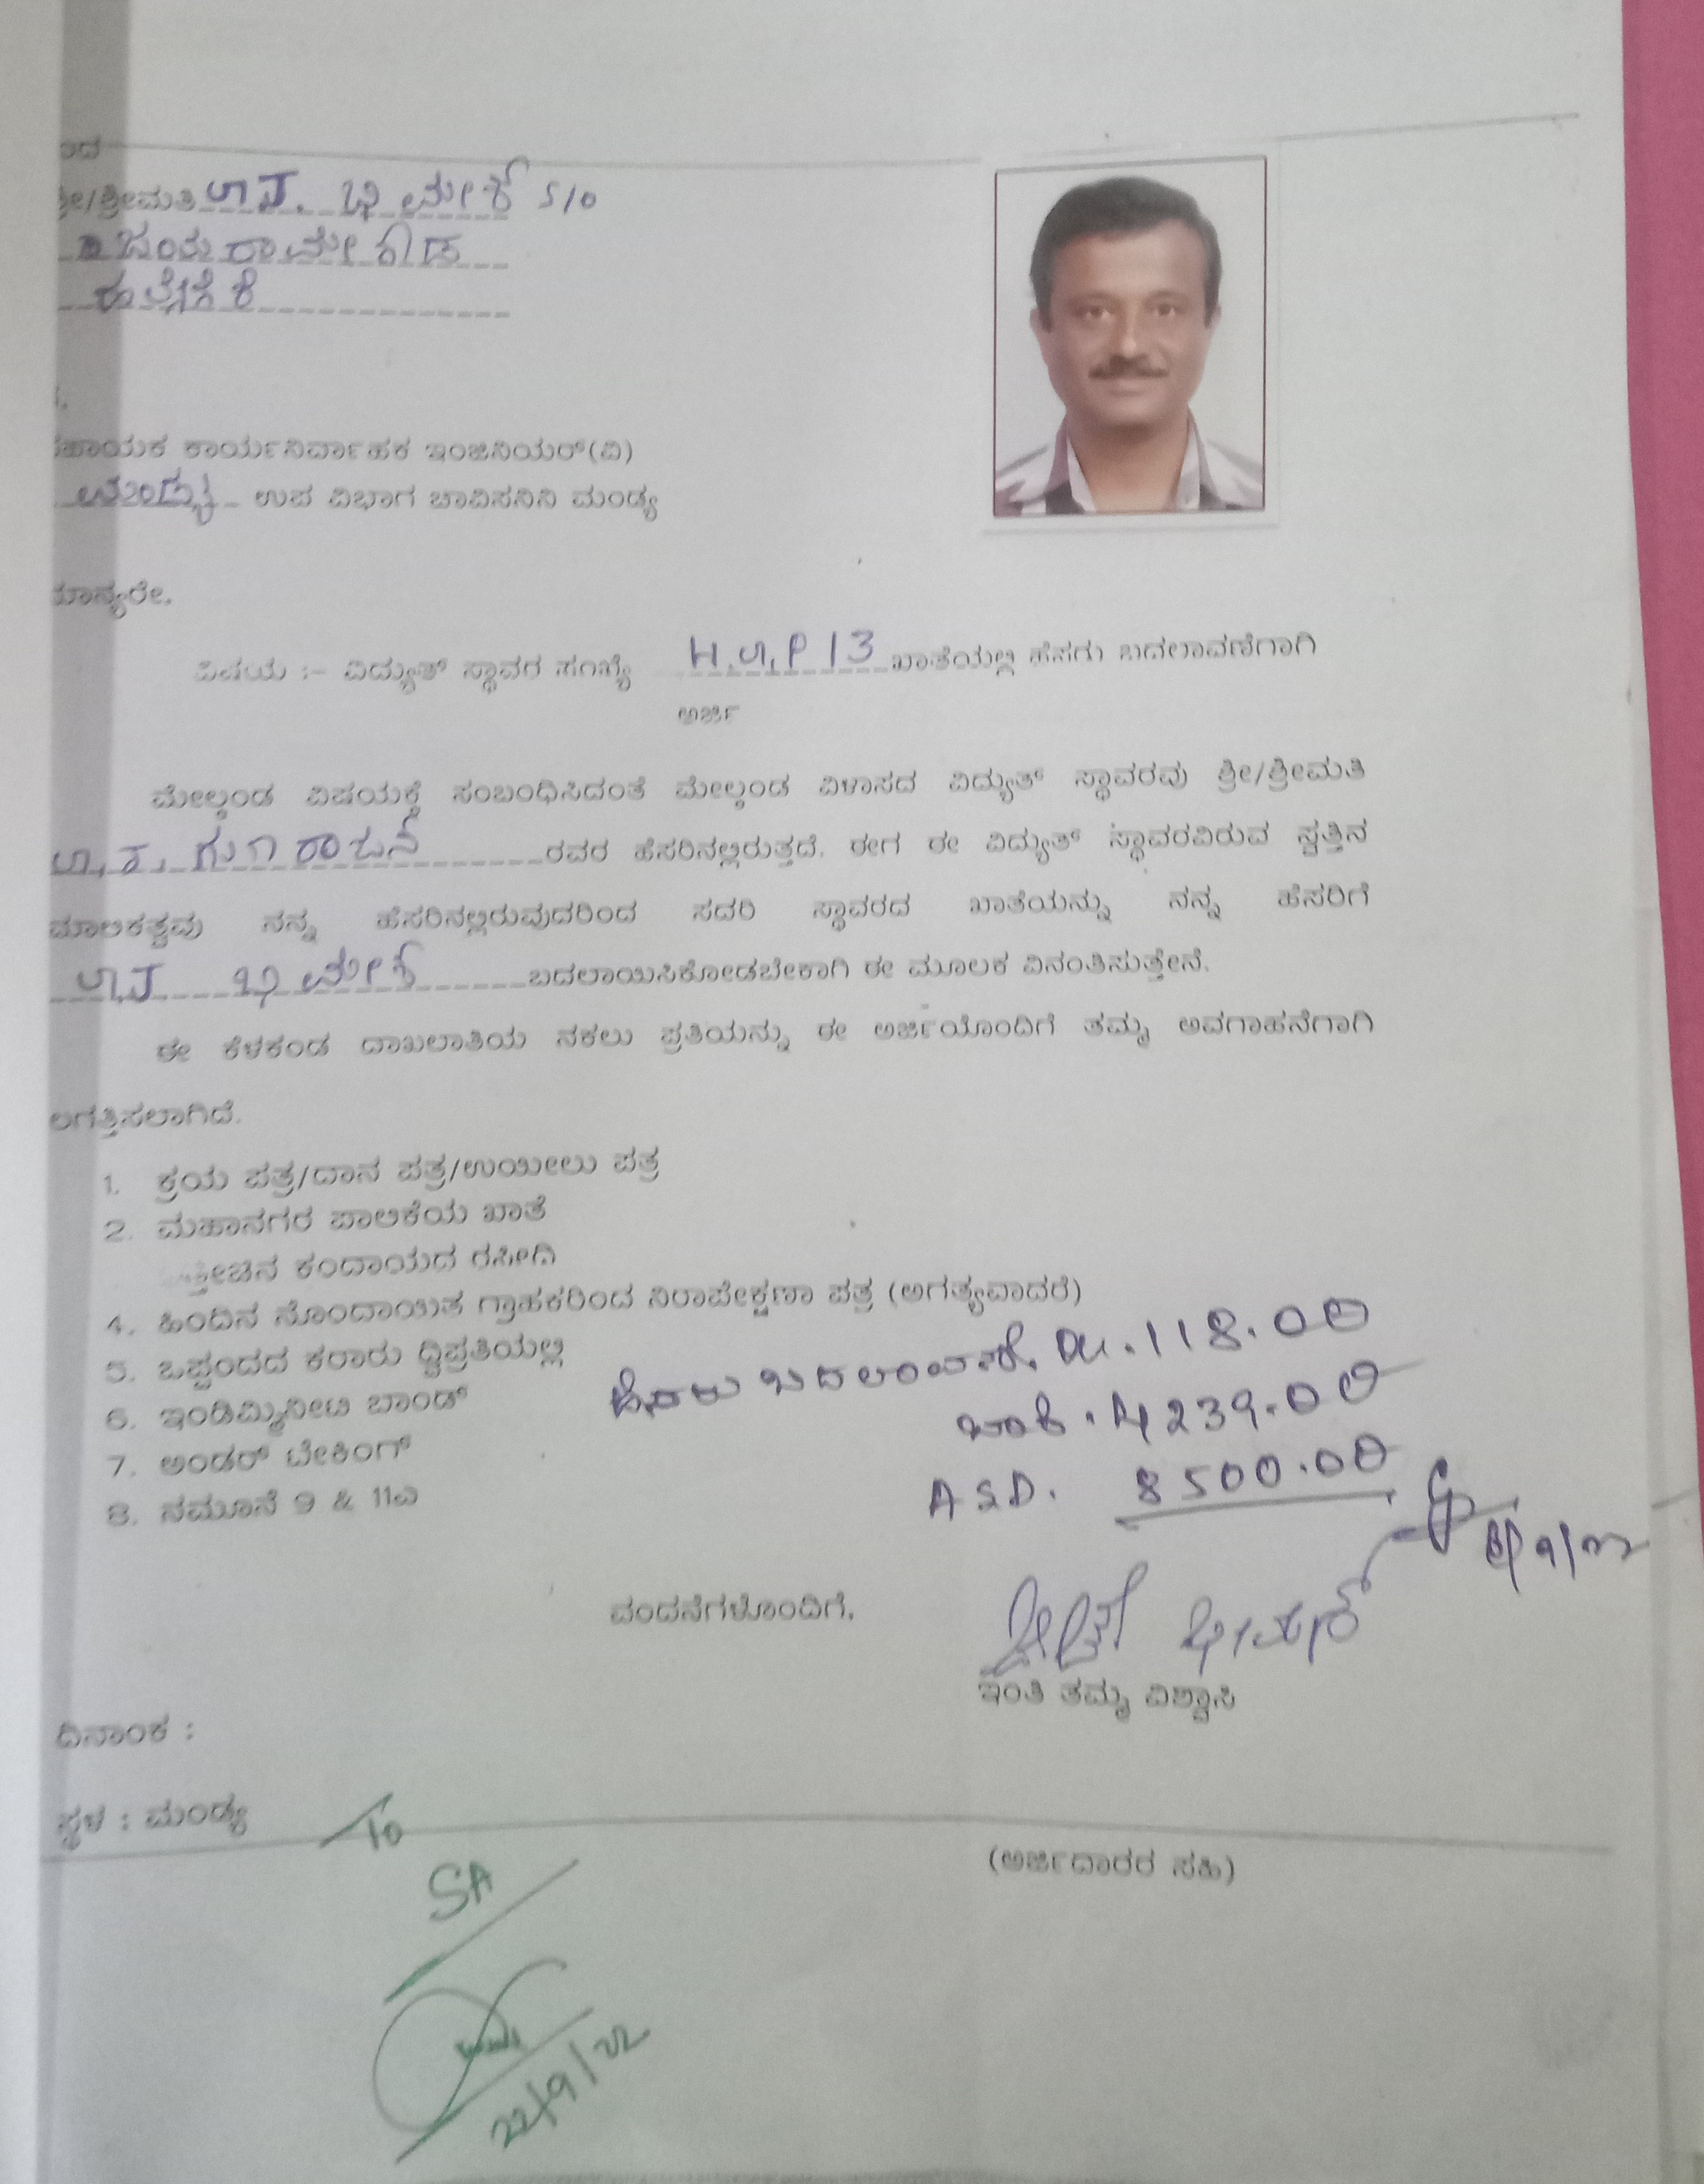 ಂದ
ಶ್ರೀ/ಶ್ರೀಮತಿ S/O
ಸಹಾಯಕ ಕಾರ್ಯನಿರ್ವಾಹಕ ಇಂಜಿನಿಯರ್(ವಿ)
ಮಂಡ್ಯ ಉಪ ವಿಭಾಗ ಚಾವಿಸನಿನಿ ಮಂಡ್ಯ
ಮಾನ್ಯರೇ,
ವಿಷಯ :- ವಿದ್ಯುತ್ ಸ್ಥಾವರ ಸಂಖ್ಯೆ 13 ಖಾತೆಯಲ್ಲಿ ಹೆಸರು ಬದಲಾವಣೆಗಾಗಿ
ಅರ್ಜಿ
ಮೇಲ್ಕಂಡ ವಿಷಯಕ್ಕೆ ಸಂಬಂಧಿಸಿದಂತೆ ಮೇಲ್ಕಂಡ ವಿಳಾಸದ ವಿದ್ಯುತ್ ಸ್ಥಾವರವು ಶ್ರೀ/ಶ್ರೀಮತಿ
ರವರ ಹೆಸರಿನಲ್ಲಿರುತ್ತದೆ. ಈಗ ಈ ವಿದ್ಯುತ್ ಸ್ಥಾವರವಿರುವ ಸ್ವತ್ತಿನ
ಮಾಲಿಕತ್ವವು ನನ್ನ ಹೆಸರಿನಲ್ಲಿರುವುದರಿಂದ ಸದರಿ ಸ್ಥಾವರದ ಖಾತೆಯನ್ನು ನನ್ನ ಹೆಸರಿಗೆ
ಬದಲಾಯಿಸಿಕೋಡಬೇಕಾಗಿ ಈ ಮೂಲಕ ವಿನಂತಿಸುತ್ತೇನೆ.
ಈ ಕೆಳಕಂಡ ದಾಖಲಾತಿಯ ನಕಲು ಪ್ರತಿಯನ್ನು ಈ ಅರ್ಜಿಯೊಂದಿಗೆ ತಮ್ಮ ಅವಗಾಹನೆಗಾಗಿ
ಲಗತ್ತಿಸಲಾಗಿದೆ.
1. ಕ್ರಯ ಪತ್ರ/ದಾನ ಪತ್ರ/ಉಯೀಲು ಪತ್ರ
2. ಮಹಾನಗರ ಪಾಲಿಕೆಯ ಖಾತೆ
ತ್ತೀಚಿನ ಕಂದಾಯದ ರಸೀದಿ
4. ಹಿಂದಿನ ನೊಂದಾಯಿತ ಗ್ರಾಹಕರಿಂದ ನಿರಾಪೇಕ್ಷಣಾ ಪತ್ರ (ಅಗತ್ಯವಾದರೆ)
5. ಒಪ್ಪಂದದ ಕರಾರು ದ್ವಿಪ್ರತಿಯಲ್ಲಿ
6. ಇಂಡಿಮ್ನಿನೀಟಿ ಬಾಂಡ್
7. ಅಂಡರ್ ಟೇಕಿಂಗ್
8. ನಮೂನೆ 9 & 11ಎ
118.00
ಬಾಕಿ. 4239.00
ASD. 8500.00
ವಂದನೆಗಳೊಂದಿಗೆ,
ಇಂತಿ ತಮ್ಮ ವಿಶ್ವಾಸಿ
ದಿನಾಂಕ :
ಸ್ಥಳ : ಮಂಡ್ಯ
(ಅರ್ಜಿದಾರರ ಸಹಿ)
To
SA
22/9/22